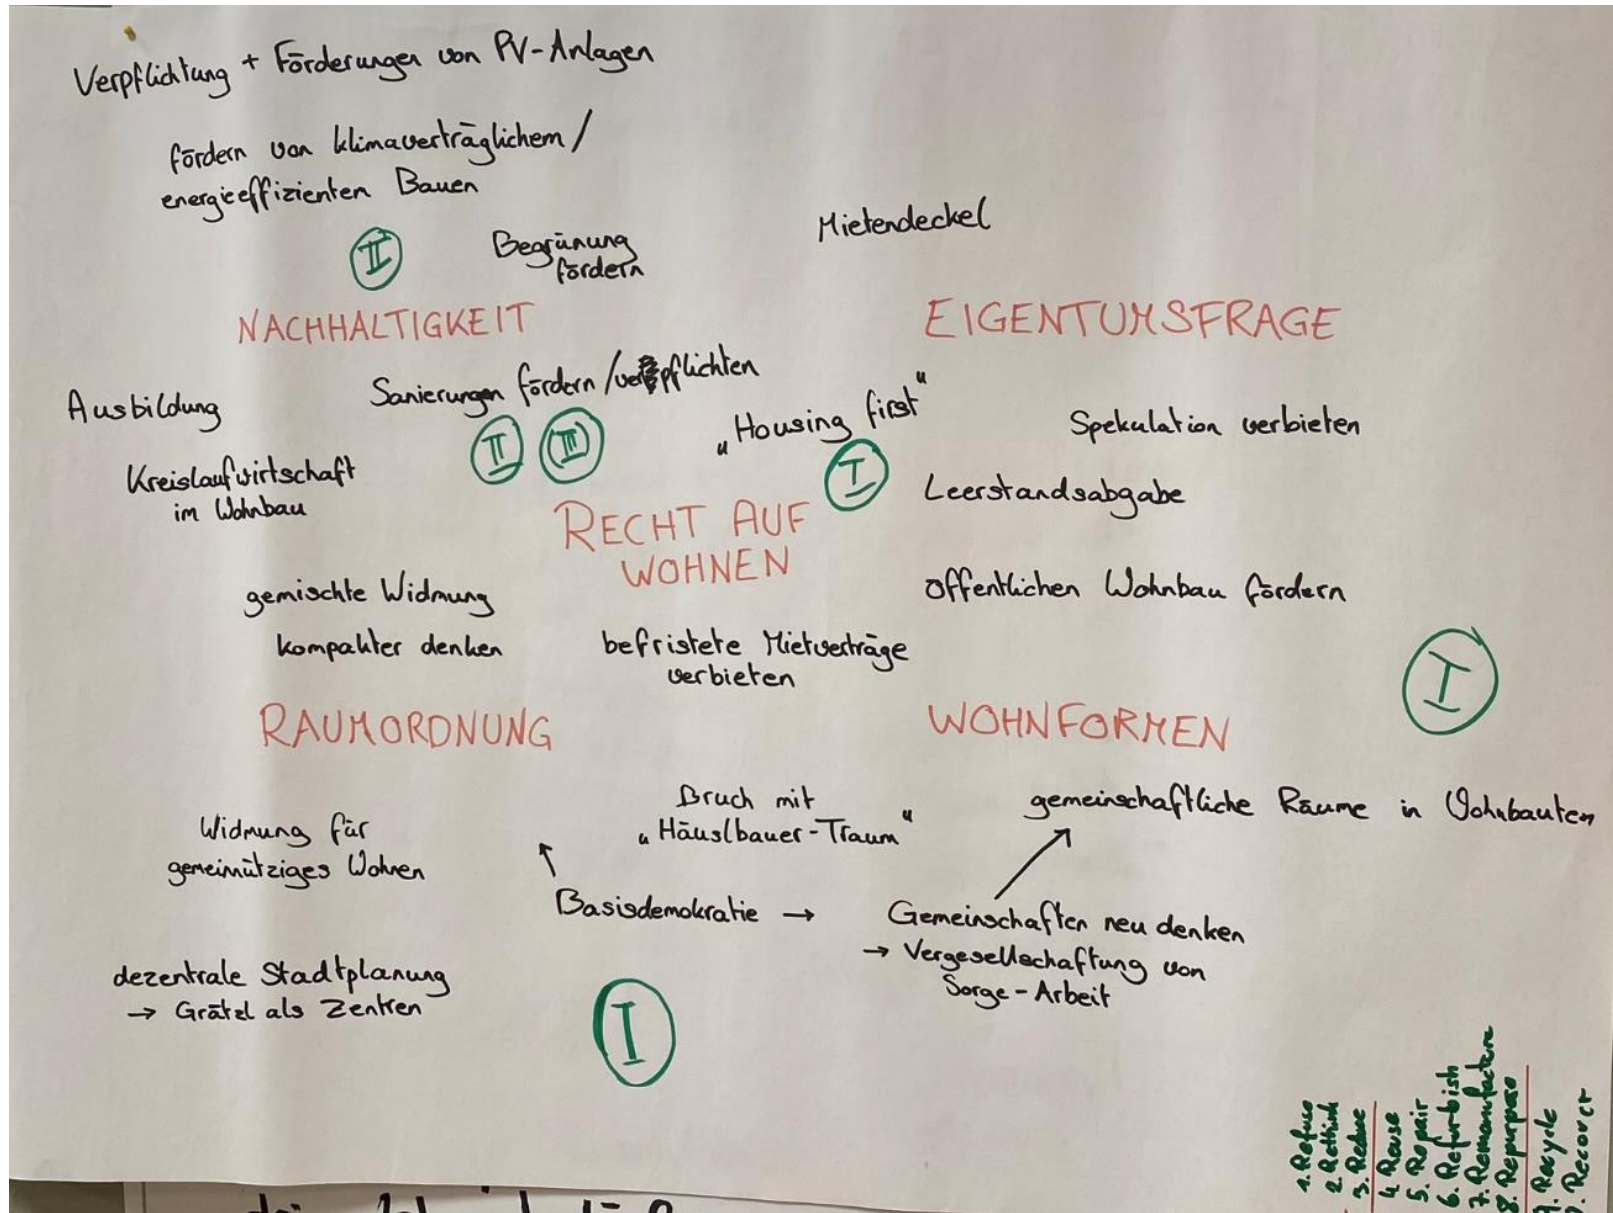 Verpflichtung + Förderungen von PV-Anlagen
fördern von klimaverträglichem /
energieeffizienten Bauen
II
Begrünung
fördern
Mietendeckel
NACHHALTIGKEIT
EIGENTUMSFRAGE
Sanierungen fördern / verpflichten
II III
Ausbildung
Kreislaufwirtschaft
im Wohnbau
„Housing first"
I
Spekulation verbieten
Leerstandsabgabe
RECHT AUF
WOHNEN
öffentlichen Wohnbau fördern
gemischte Widmung
kompakter denken
befristete Mietverträge
verbieten
I
RAUMORDNUNG
WOHNFORMEN
Widmung für
gemeinnütziges Wohnen
Bruch mit
„Häuslbauer-Traum"
gemeinschaftliche Räume in Wohnbauten
Basisdemokratie →
Gemeinschaften neu denken
→ Vergesellschaftung von
Sorge-Arbeit
dezentrale Stadtplanung
→ Grätzl als Zentren
I
1. Refuse
2. Rethink
3. Reduce
4. Reuse
5. Repair
6. Refurbish
7. Remanufacture
8. Repurpose
9. Recycle
0. Recover